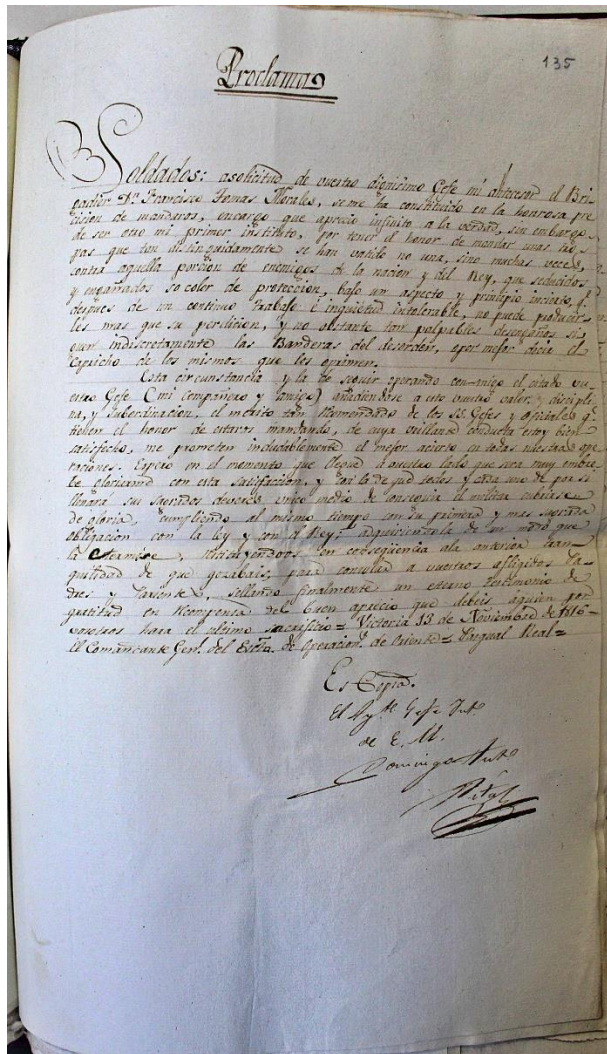 135
Proclama
Soldados: asolicitud de vuestro dignisimo Gefe mi antecesor el Bri-
gadier Dn. Francisco Tomas Morales, se me ha constituido en la honrosa pre
cision de mandaros, encargo que aprecio infinito a la verdad, sin embargo
de ser otro mi primer instituto, por tener el honor de mandar unas tro-
pas que tan distinguidamente se han vatido no una, sino muchas veces,
contra aquella porcion de enemigos de la nacion y del Rey, que seducidos
y engañados so color de proteccion, bajo un aspecto y principio incierto, q.e
despues de un continuo trabajo é inquietud intolerable, no puede producir
les mas que su perdicion, y no obstante tan palpables desengaños si-
guen indiscretamente las Banderas del desorden, o por mejor decir el
capricho de los mismos que los oprimen.
Esta circunstancia y la de seguir operando con-migo el citado vu-
estro Gefe (mi compañero y amigo) añadiendose a esto vuestro valor, y discipli-
na, y subordinacion, el merito tan recomendado de los SS. Gefes y oficiales q.e
tienen el honor de estaros mandando, de cuya brillante conducta estoy bien
satisfecho, me prometen indudablemente el mejor acierto en todas nuestras ope
raciones. Espero en el momento que llegue a vuestro lado que sera muy en bre-
be gloriarme con esta satisfaccion, y con la de que todos y cada uno de por si
llenará sus sagrados deveres unico medio de conseguir el militar cubrirse
de gloria, cumpliendo al mismo tiempo con su primera y mas sagrada
obligacion con la ley y con el Rey: adquiriendola de un modo que
la eternice, restituyendoos en conseqüencia ala anterior tran-
quilidad de que gozabais, para consolar a vuestros afligidos Pa-
dres y Parientes, sellando finalmente un eterno testimonio de
gratitud en recompensa del buen aprecio que debeis aquien por
vosotros hará el ultimo sacrificio = Victoria 13 de Noviembre de 1816 =
El Comandante Gen.l del Exto. de Operacion.s de Oriente = Pasqual Real =
Es Copia.
El Ay.te Gefe
de E. M.
Domingo